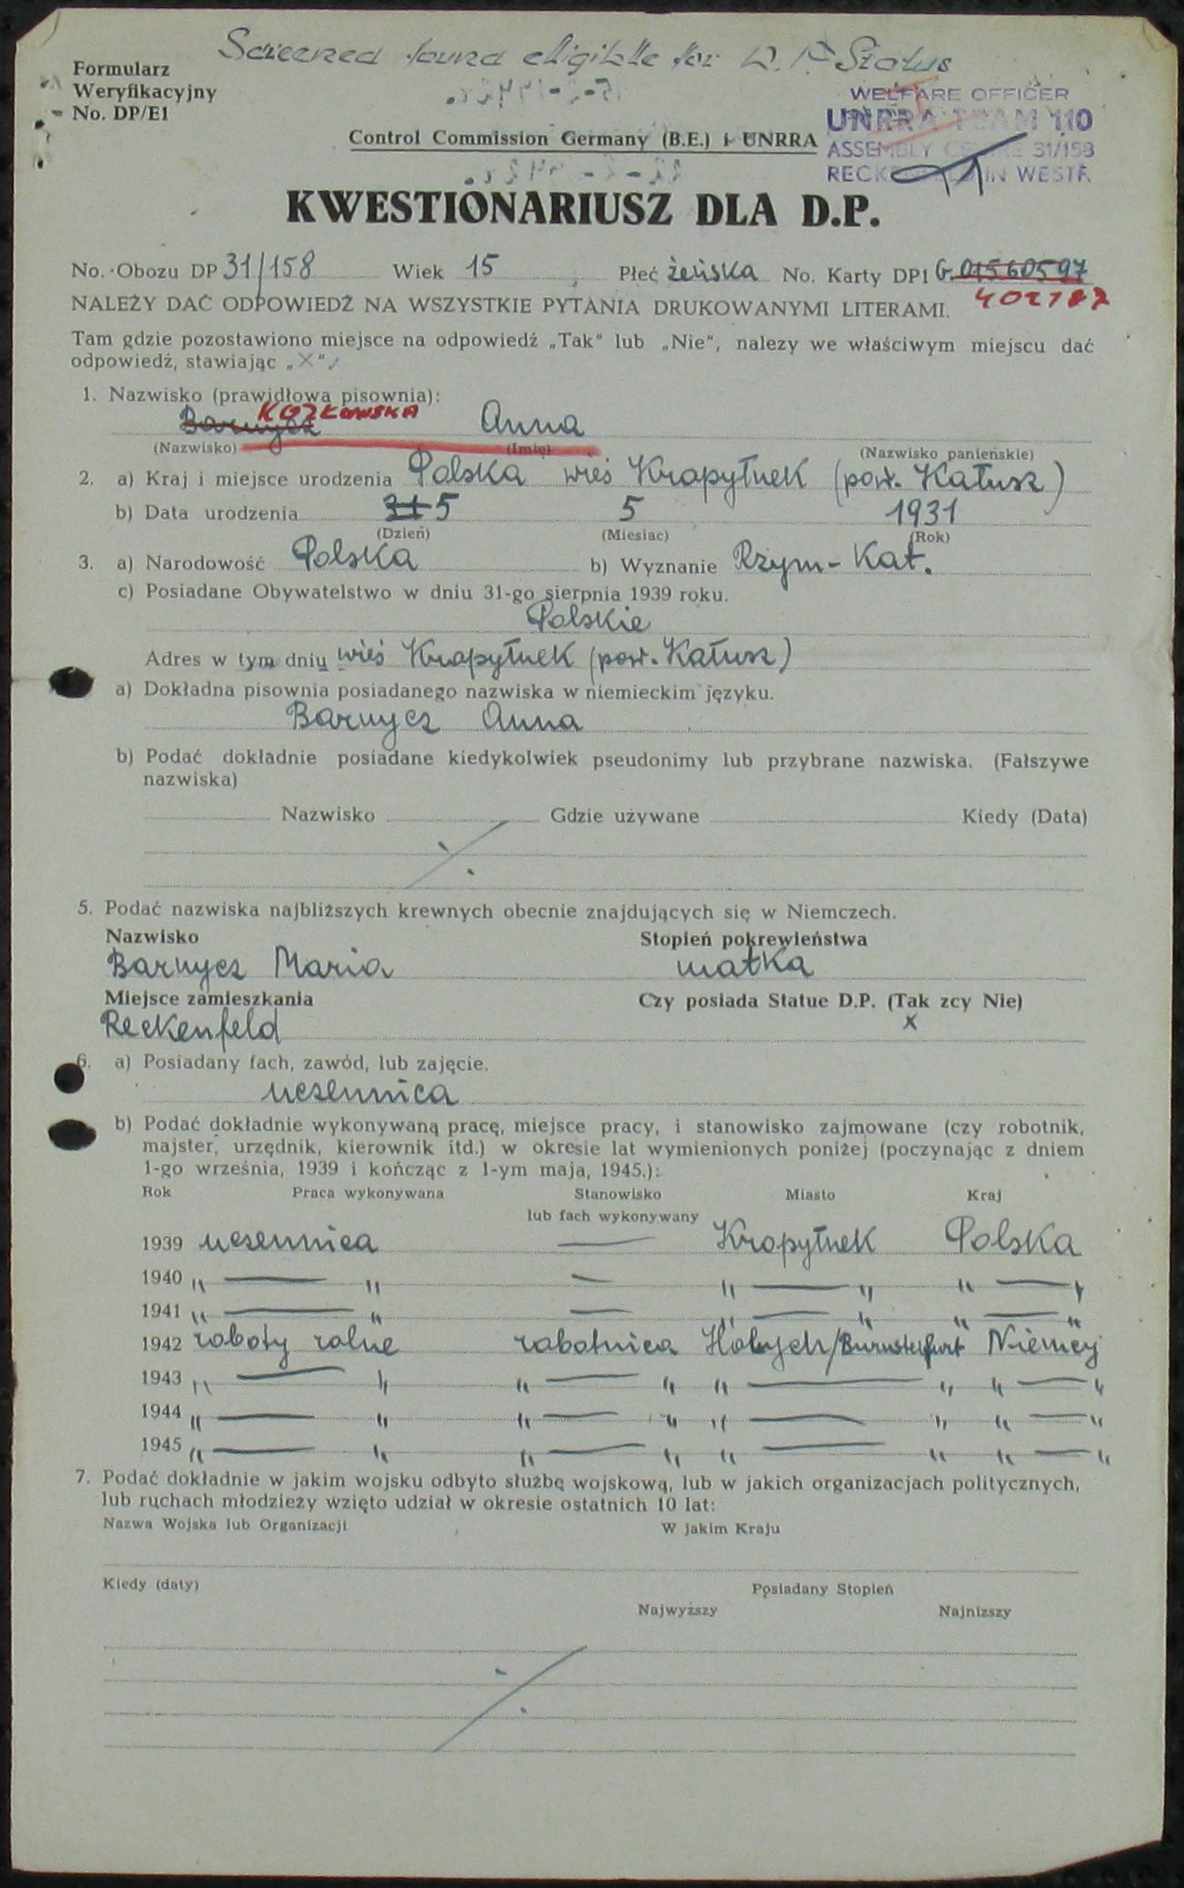 Screened found eligible for D.P. Status
Formularz
Weryfikacyjny
No. DP/E1
WELFARE OFFICER
UNRRA TEAM 110
ASSEMBLY CENTRE 31/158
IN WESTF.
Control Commission Germany (B.E.) i UNRRA
KWESTIONARIUSZ DLA D.P.
No. Obozu DP 31/158 Wiek 15 Płeć żeńska No. Karty DP1 G.01560597
402187
NALEŻY DAĆ ODPOWIEDŹ NA WSZYSTKIE PYTANIA DRUKOWANYMI LITERAMI.
Tam gdzie pozostawiono miejsce na odpowiedź „Tak" lub „Nie", nalezy we właściwym miejscu dać
odpowiedź, stawiając „X"
1. Nazwisko (prawidłowa pisownia):
Barnycz KOZŁOWSKA Anna
(Nazwisko) (Imię) (Nazwisko panieńskie)
2. a) Kraj i miejsce urodzenia Polska wieś Kropyłnek (pow. Kałusz)
b) Data urodzenia 31 5 5 1931
(Dzień) (Miesiac) (Rok)
3. a) Narodowość Polska b) Wyznanie Rzym-Kat.
c) Posiadane Obywatelstwo w dniu 31-go sierpnia 1939 roku.
Polskie
Adres w tym dniu wieś Kropyłnek (pow. Kałusz)
a) Dokładna pisownia posiadanego nazwiska w niemieckim języku.
Barnycz Anna
b) Podać dokładnie posiadane kiedykolwiek pseudonimy lub przybrane nazwiska. (Fałszywe
nazwiska)
Nazwisko Gdzie używane Kiedy (Data)
5. Podać nazwiska najbliższych krewnych obecnie znajdujących się w Niemczech.
Nazwisko Stopień pokrewieństwa
Barnycz Maria matka
Miejsce zamieszkania Czy posiada Statue D.P. (Tak zcy Nie)
Reckenfeld x
6. a) Posiadany fach, zawód, lub zajęcie.
uczennica
b) Podać dokładnie wykonywaną pracę, miejsce pracy, i stanowisko zajmowane (czy robotnik,
majster, urzędnik, kierownik itd.) w okresie lat wymienionych poniżej (poczynając z dniem
1-go września, 1939 i kończąc z 1-ym maja, 1945.):
Rok Praca wykonywana Stanowisko Miasto Kraj
lub fach wykonywany
1939 uczennica — Kropyłnek Polska
1940 „ — „ — „ — „ „ — „
1941 „ — „ — „ — „ „ — „
1942 roboty rolne robotnica Niemcy
1943 „ — „ „ — „ „ — „ „ — „
1944 „ — „ „ — „ „ — „ „ — „
1945 „ — „ „ — „ „ — „ „ — „
7. Podać dokładnie w jakim wojsku odbyto służbę wojskową, lub w jakich organizacjach politycznych,
lub ruchach młodzieży wzięto udział w okresie ostatnich 10 lat:
Nazwa Wojska lub Organizacji W jakim Kraju
Kiedy (daty) Posiadany Stopień
Najwyższy Najnizszy